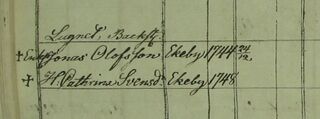 Lugnet, Backst.
† Enkl. Jonas Olofsson Ekeby 1744 24/12.
† H. Cathrina Svensd. Ekeby 1748